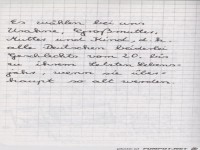 Es wählen bei uns
Urahne, Großmutter,
Mutter und Kind, d. h.
alle Deutschen beiderlei
Geschlechts vom 20. bis
zu ihrem letzten Lebens-
jahr, wenn sie über-
haupt so alt werden.